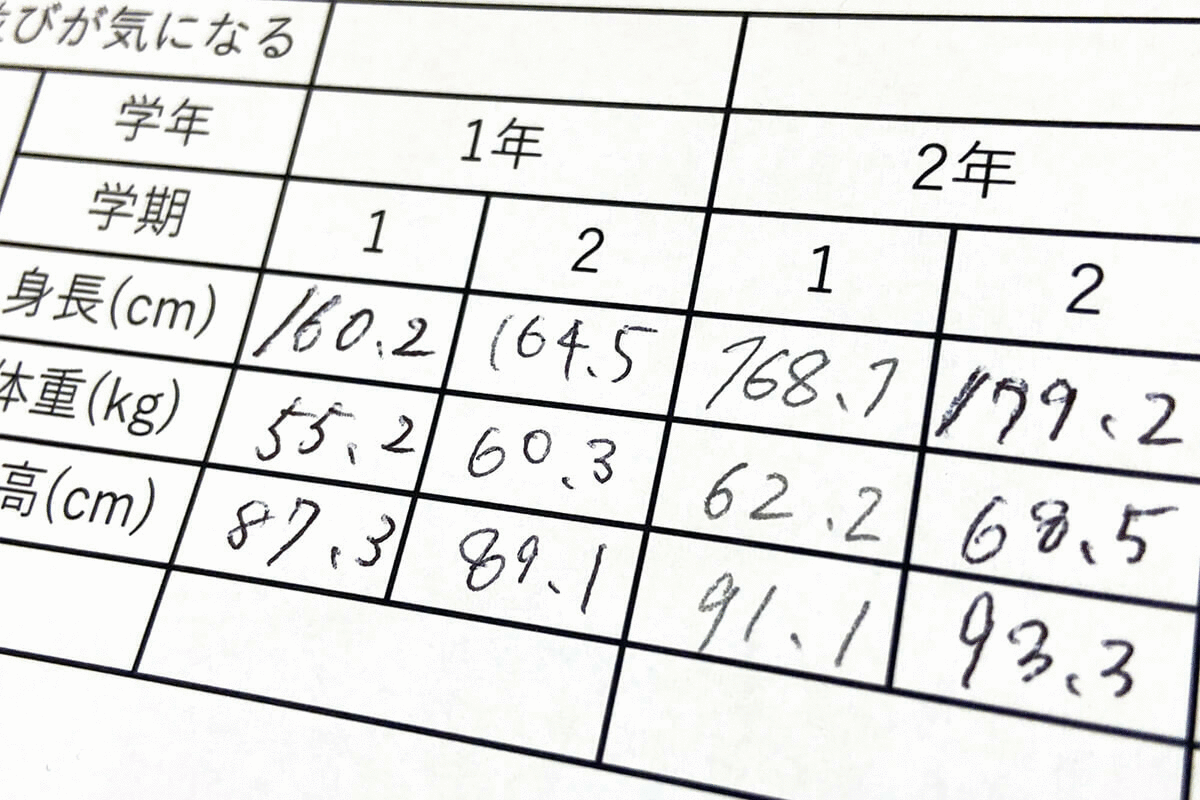 びが気になる
学年 1年 2年
学期 1 2 1 2
身長(cm) 160.2 164.5 168.7 179.2
体重(kg) 55.2 60.3 62.2 68.5
高(cm) 87.3 89.1 91.1 93.3